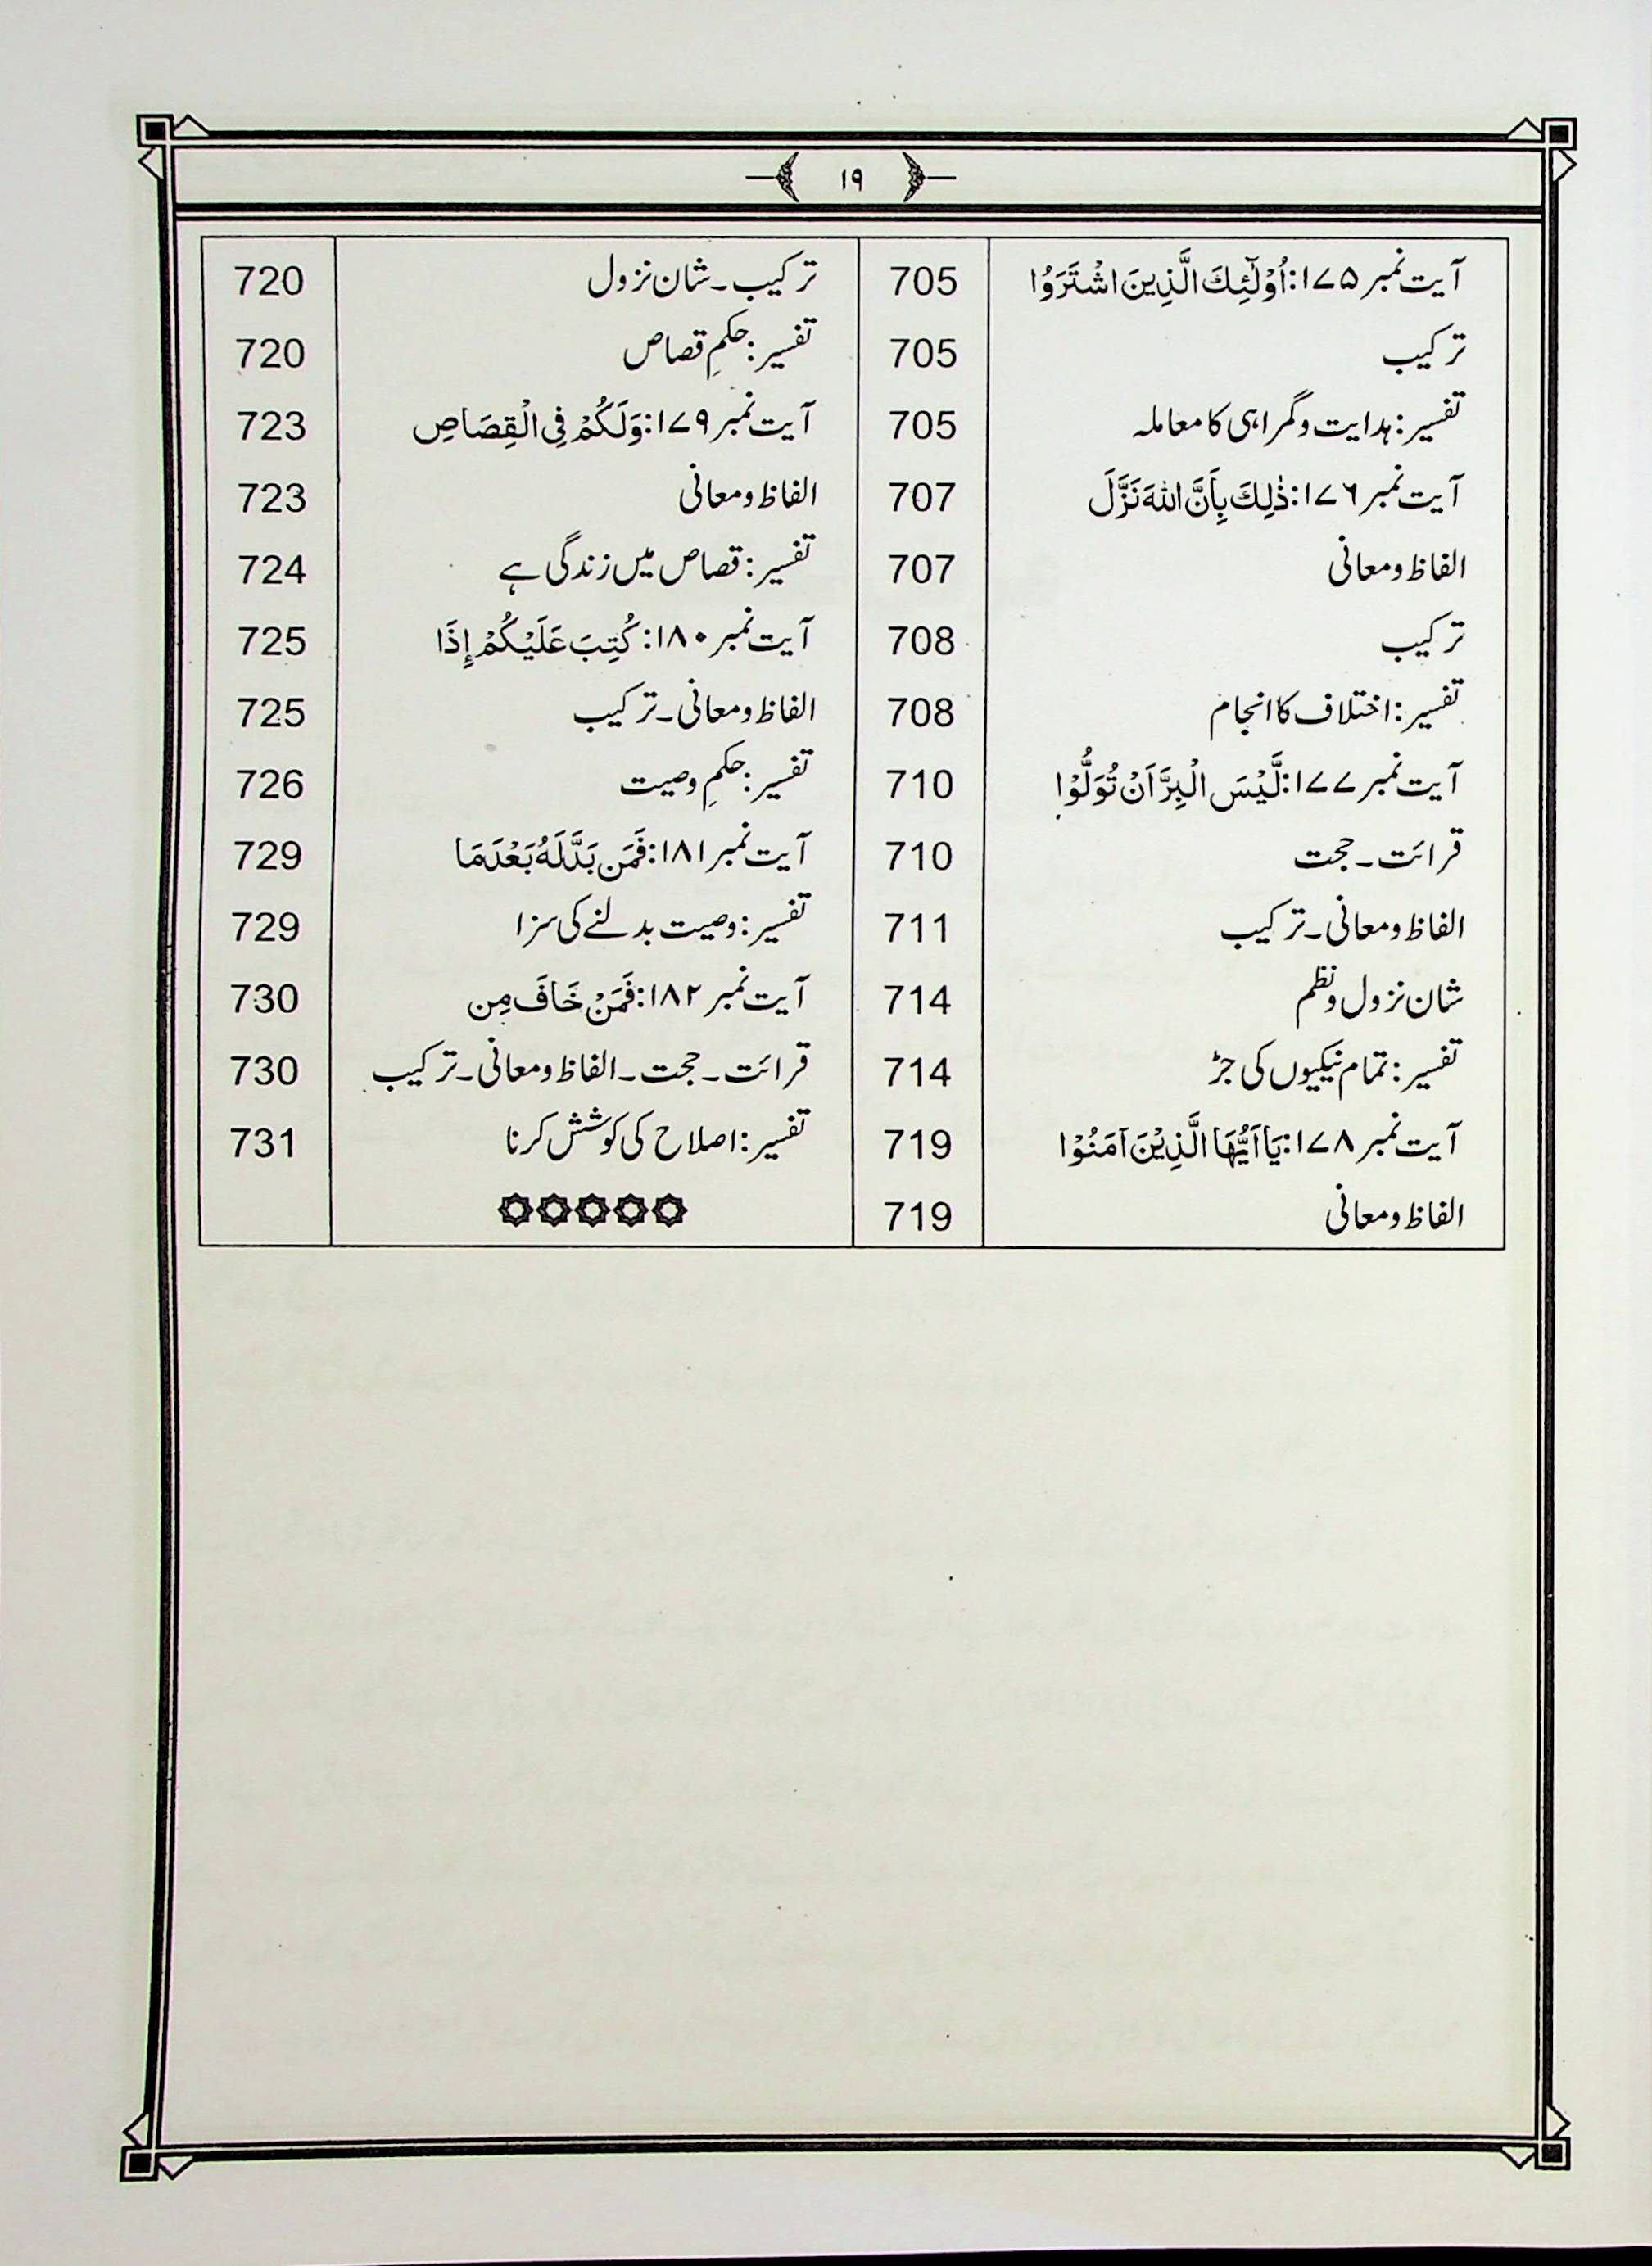 ۱۹
آیت نمبر ۱۷۵: اُوْلٰٓئِكَ الَّذِينَ اشْتَرَوُا 705
ترکیب 705
تفسیر: ہدایت و گمراہی کا معاملہ 705
آیت نمبر ۱۷۶: ذٰلِكَ بِاَنَّ اللهَ نَزَّلَ 707
الفاظ و معانی 707
ترکیب 708
تفسیر: اختلاف کا انجام 708
آیت نمبر ۱۷۷: لَّيْسَ الْبِرَّ اَنْ تُوَلُّوْا 710
قرائت ۔ حجت 710
الفاظ و معانی ۔ ترکیب 711
شان نزول و نظم 714
تفسیر: تمام نیکیوں کی جڑ 714
آیت نمبر ۱۷۸: يَا اَيُّهَا الَّذِيْنَ آمَنُوْا 719
الفاظ و معانی 719
ترکیب ۔ شان نزول 720
تفسیر: حکمِ قصاص 720
آیت نمبر ۱۷۹: وَلَكُمْ فِي الْقِصَاصِ 723
الفاظ و معانی 723
تفسیر: قصاص میں زندگی ہے 724
آیت نمبر ۱۸۰: كُتِبَ عَلَيْكُمْ إِذَا 725
الفاظ و معانی ۔ ترکیب 725
تفسیر: حکمِ وصیت 726
آیت نمبر ۱۸۱: فَمَن بَدَّلَهُ بَعْدَمَا 729
تفسیر: وصیت بدلنے کی سزا 729
آیت نمبر ۱۸۲: فَمَنْ خَافَ مِن 730
قرائت ۔ حجت ۔ الفاظ و معانی ۔ ترکیب 730
تفسیر: اصلاح کی کوشش کرنا 731